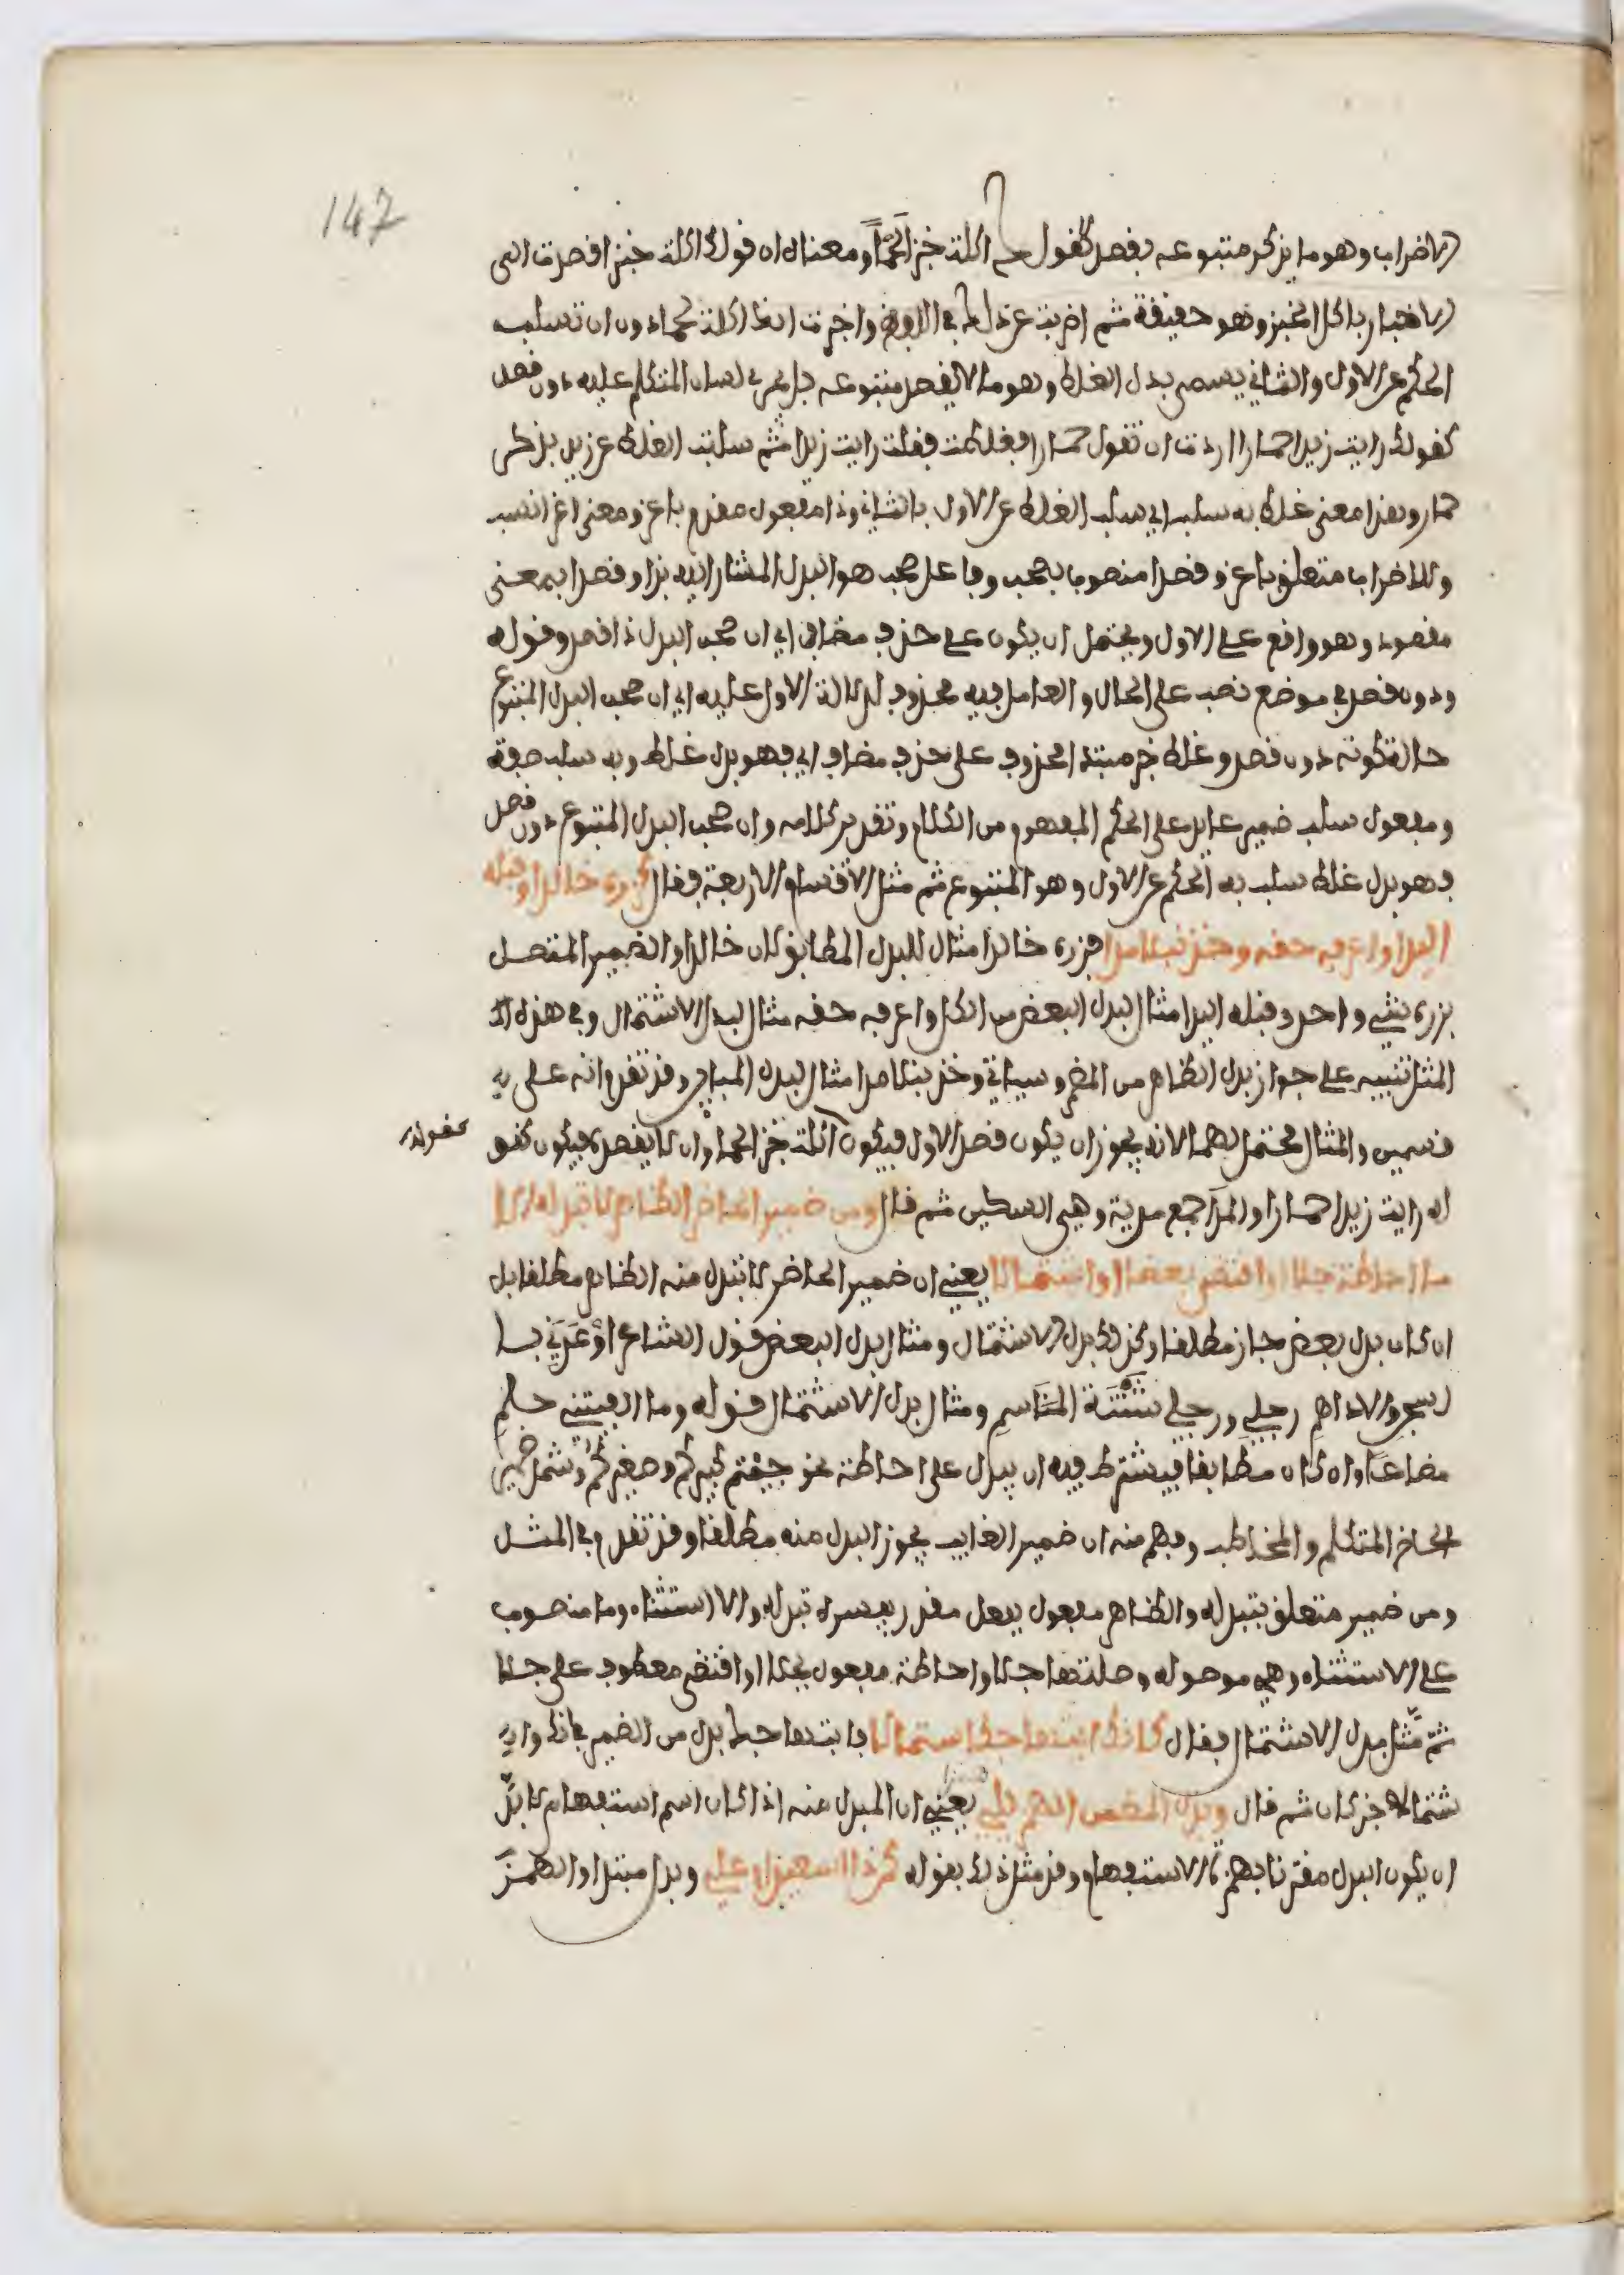 147
الاضراب وهو ما يذكر متبوعه بقصد كقولك اكلت خبزا لحما ومعناه ان قولك اكلت خبزا قصدت الى
الاخبار باكل الخبز وهو حقيقة ثم اضربت عن ذلك في اللفظ واخبرت انك اكلت لحما دون ان تسلب
الحكم عن الاول والثاني يسمى بدل الغلط وهو ما لا يقصد متبوعه بل يجرى لسان المتكلم عليه دون قصد
كقولك رايت زيدا حمارا اردت ان تقول حمارا فغلطت فقلت رايت زيدا ثم سلبت الغلط عن زيد بذكر
حمار وهذا معنى غلط به سلب اي سلب الغلط عن الاول بالثاني وذا مفعول مقدم باعز ومعنى اعز انسب
وللاضراب متعلق باعز وقصدا منصوب بصحب وفاعل صحب هو البدل المشار اليه بذا وقصدا بمعنى
مقصود وهو واقع على الاول ويحتمل ان يكون على حذف مضاف اي ان صحب البدل ذا قصد وقوله
ودون قصد في موضع نصب على الحال والعامل فيه محذوف لدلالة الاول عليه اي ان صحب البدل المتبوع
حالة كونه دون قصد وغلط خبر مبتدا محذوف على حذف مضاف اي فهو بدل غلط وبه سلب صفة
ومفعول سلب ضمير عايد على الحكم المفهوم من الكلام وتقدير كلامه وان صحب البدل المتبوع دون قصد
فهو بدل غلط سلب به الحكم عن الاول وهو المتبوع ثم مثل الاقسام الاربعة فقال كزره خالدا وقبله
اليدا واعرفه حقه وخذ نبلا مدا فزره خالدا مثال للبدل المطابق لان خالدا والضمير المتصل
بزره شيء واحد وقبله اليدا مثال لبدل البعض من الكل واعرفه حقه مثال لبدل الاشتمال وفي هذه الا
المثل تنبيه على جواز بدل الظاهر من المضمر وسياتي وخذ نبلا مدا مثال لبدل المباين وقد تقدم انه على
قسمين والمثال محتمل لهما لانه يجوز ان يكون قصد الاول فيكون كقولك اكلت خبزا لحما وان لا يقصده فيكون كقو
لك رايت زيدا حمارا والمدا جمع مدية وهي السكين ثم قال ومن ضمير الحاضر الظاهر لا تبدله الا
ما احاطة جلا او اقتضى بعضا او اشتمالا يعني ان ضمير الحاضر لا تبدل منه الظاهر مطلقا بل
ان كان بدل بعض جاز مطلقا وكذلك بدل الاشتمال ومثال بدل البعض قول الشاعر اوعدني با
لسجن والاداهم رجلي ورجلي شثنة المناسم ومثال بدل الاشتمال قوله وما الفيتني حلمي
مضاعا وان كان مطابقا فيشترط فيه ان يدل على احاطة نحو جيتم كبيركم وصغيركم وشمل ضمير
الحاضر المتكلم والمخاطب وفهم منه ان ضمير الغايب يجوز البدل منه مطلقا وقد تقدم في المثل
ومن ضمير متعلق بتبدله والظاهر مفعول بفعل مقدر يفسره تبدله والا استثناء وما منصوب
على الاستثناء وهي موصولة وصلتها جلا واحاطة مفعول بجلا او اقتضى معطوف على جلا
ثم مثل بدل الاشتمال فقال كانك ابتهاجك استمالا فابتهاجك بدل من الضمير في انك وا
ستمالا خبر كان ثم قال وبدل المضمن الهمز يلي همزا يعني ان المبدل منه اذا كان اسم استفهام لا بد
ان يكون البدل مقترنا بهمزة الاستفهام وقد مثل ذلك بقوله كمن ذا اسعيد ام علي وبدل مبتدا والهمز